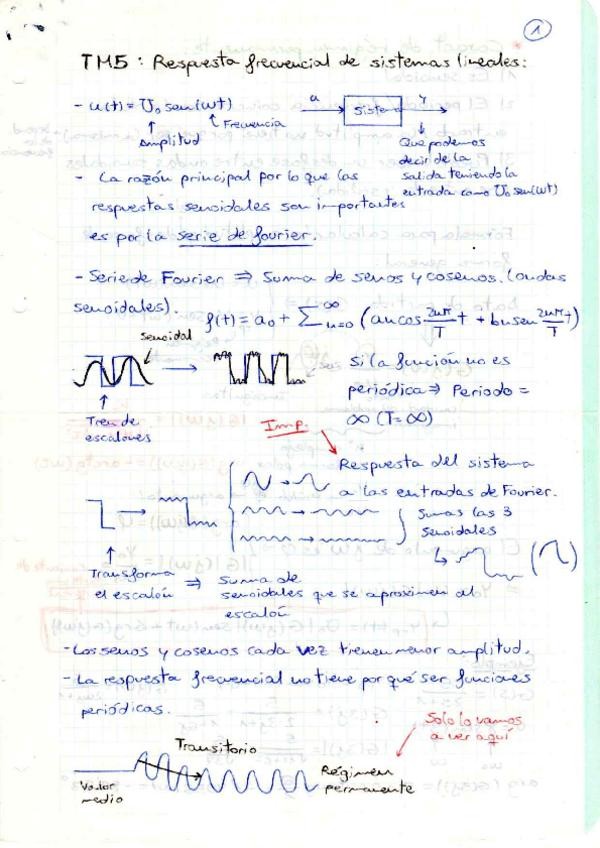 1
TM5 : Respuesta frecuencial de sistemas lineales:
- u(t) = U₀ sen(ωt)
Amplitud
Frecuencia
u
Sistema
y
Que podemos
decir de la
salida teniendo la
entrada como U₀ sen(ωt)
- La razón principal por lo que las
respuestas senoidales son importantes
es por la serie de fourier.
- Serie de Fourier ⇒ Suma de senos y cosenos. (ondas
senoidales).
f(t) = a₀ + Σ_{n=0}^{∞} (an cos 2nπ/T t + bn sen 2nπ/T t)
senoidal
Tren de
escalones
si la función no es
periódica ⇒ Periodo =
∞ (T = ∞)
Imp.
Respuesta del sistema
a las entradas de Fourier.
sumas las 3
senoidales
Transforma
el escalón
⇒ Suma de
senoidales que se aproximen al
escalón
- Los senos y cosenos cada vez tienen menor amplitud.
- La respuesta frecuencial no tiene por qué ser funciones
periódicas.
Solo lo vamos
a ver aquí
Transitorio
Valor
medio
Régimen
permanente